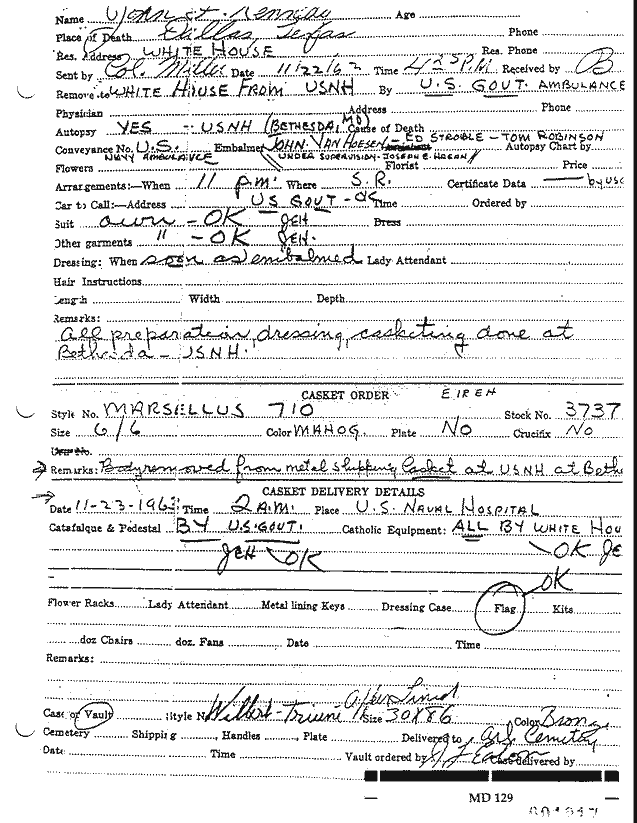 Name John F. Kennedy Age
Place of Death Dallas, Texas Phone
Res. Address WHITE HOUSE Res. Phone
Sent by Col. Miller Date 11/22/63 Time 4:25 P.M. Received by B
Remove to WHITE HOUSE FROM USNH By U.S. GOVT. AMBULANCE
Physician Address Phone
Autopsy YES - USNH (BETHESDA, MD) Cause of Death
Conveyance No. U.S. Embalmer JOHN VAN HOESEN - ED STROBLE - TOM ROBINSON Autopsy Chart by
NAVY AMBULANCE UNDER SUPERVISION - JOSEPH E. HAGAN
Flowers Florist Price
Arrangements:—When 11 p.m. Where S.R. Certificate Data by USG
Car to Call:—Address US GOVT - OK Time Ordered by
Suit own - OK JEH Dress
Other garments " - OK JEH.
Dressing: When soon as embalmed Lady Attendant
Hair Instructions
Length Width Depth
Remarks:
All preparation, dressing, casketing done at
Bethesda - USNH.
CASKET ORDER
Style No. MARSELLUS 710 Stock No. 3737
Size 6/6 Color MAHOG. Plate NO Crucifix NO
Remarks: Body removed from metal shipping Casket at USNH at Beth
CASKET DELIVERY DETAILS
Date 11-23-1963 Time 2 A.M. Place U.S. NAVAL HOSPITAL
Catafalque & Pedestal BY U.S. GOVT. Catholic Equipment: ALL BY WHITE HOU
JEH OK OK JE
OK
Flower Racks Lady Attendant Metal lining Keys Dressing Case Flag Kits
doz Chairs doz. Fans Date Time
Remarks:
Case or Vault Style No Wilbert-Triune Size 30X86 Color Bronz
Cemetery Shipping Handles Plate Delivered to Arl. Cemetery
Date Time Vault ordered by Case delivered by
MD 129